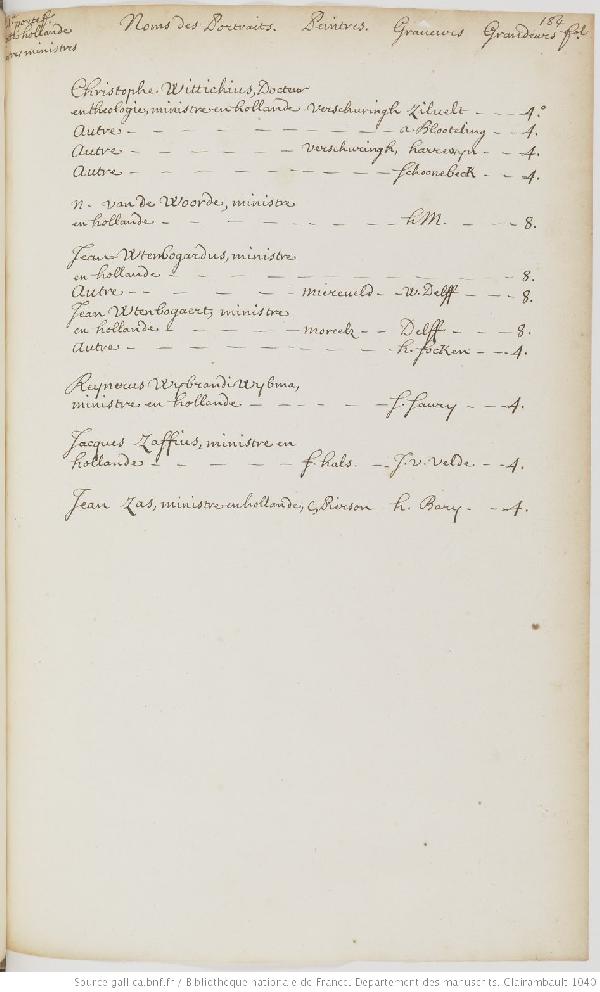 184
hollande
ministres
Noms des Portraits. Peintres. Graveurs Grandeurs fol
Christophe Wittichius, Docteur
en theologie, ministre en hollande Verschuringh Zilvelt - - - 4.°
Autre - - - - - - a. Blooteling - - 4.
Autre - - - - - Verschuringh, harrewyn - - 4.
Autre - - - - - - Schoonebeck - - 4.
n. van de Woorde, ministre
en hollande - - - - - - h M. - - - 8.
Jean Wtenbogardus, ministre
en hollande - - - - - - - - - 8.
Autre - - - - - miereveld - - W. Delff - - - 8.
Jean Wtenbogaert, ministre
en hollande - - - - moreelz - - Delff - - - 8.
Autre - - - - - - - h. focken - - - 4.
Reynerus Wybrandi Wybma,
ministre en hollande - - - - - - 4.
Jacques Zaffius, ministre en
hollande - - - - f. hals - - J. v. velde - - 4.
Jean Zas, ministre en hollande, C, Pierson h. Bary - - - 4.
Source gallica.bnf.fr / Bibliothèque nationale de France. Département des manuscrits. Clairambault 1040